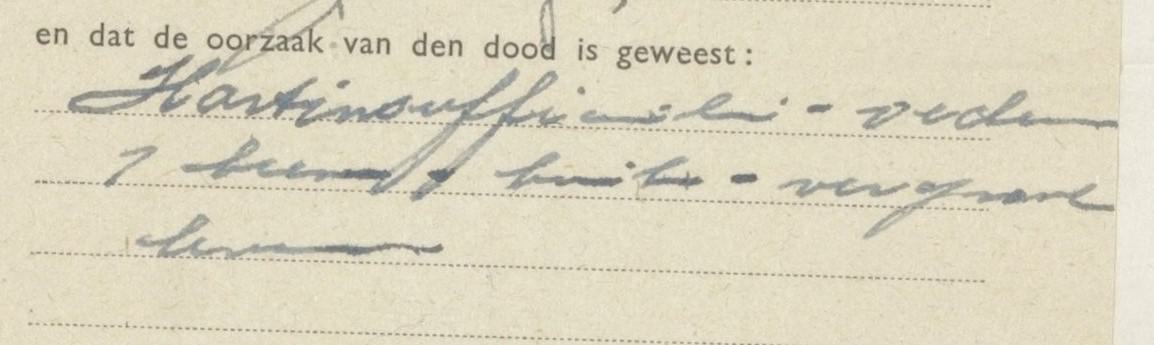 en dat de oorzaak van den dood is geweest:
Hartinsufficientie - oedem
buik - vergroote
lever